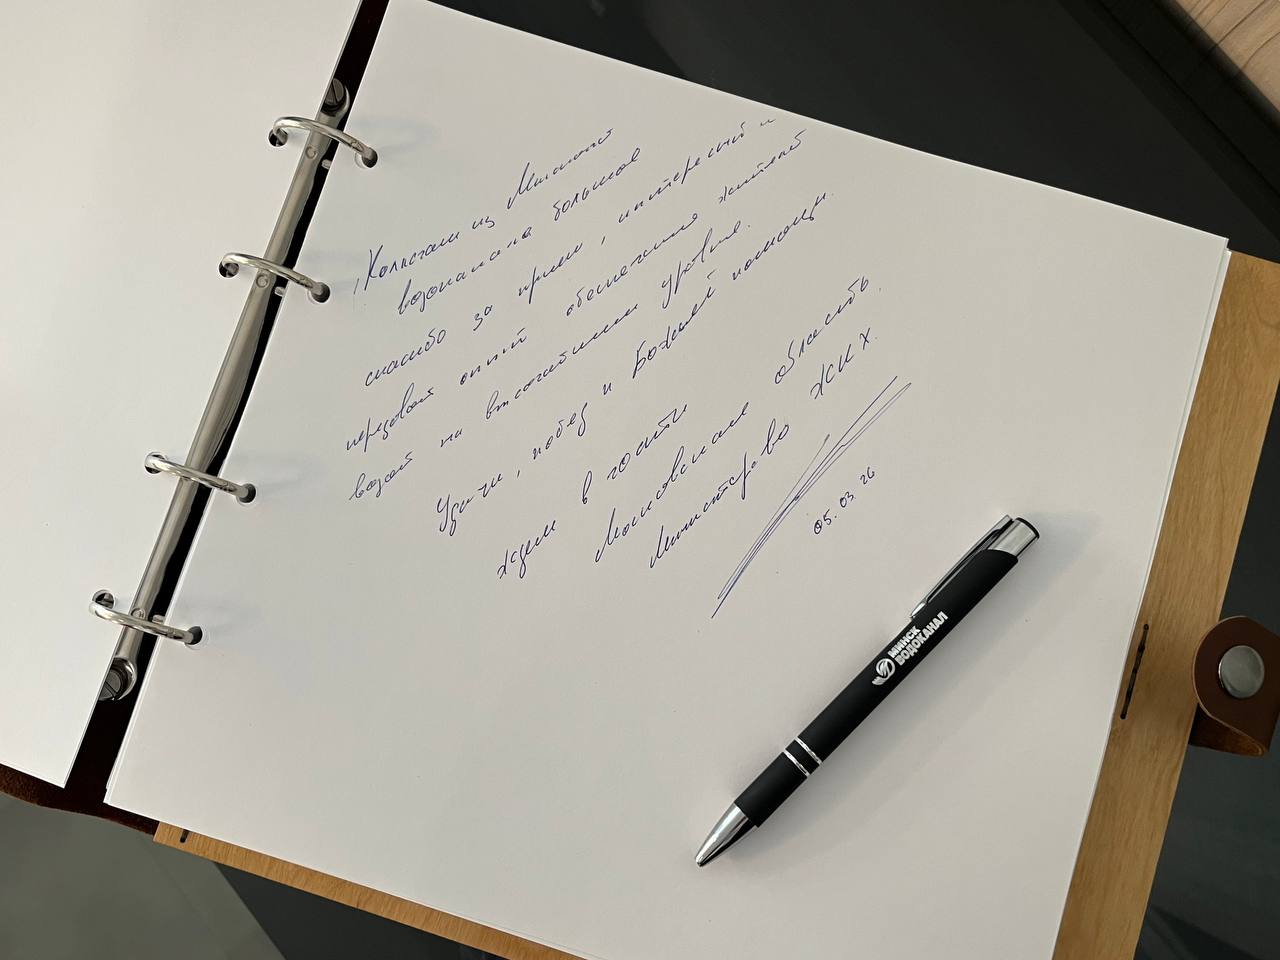 Коллегам из Минского
водоканала большое
спасибо за прием, интересный и
передовой опыт обеспечения жителей
водой на высочайшем уровне.
Удачи, побед и Божией помощи.
Ждем в гости
Московская область.
Министерство ЖКХ.
05.03.26
МИНСК
ВОДОКАНАЛ